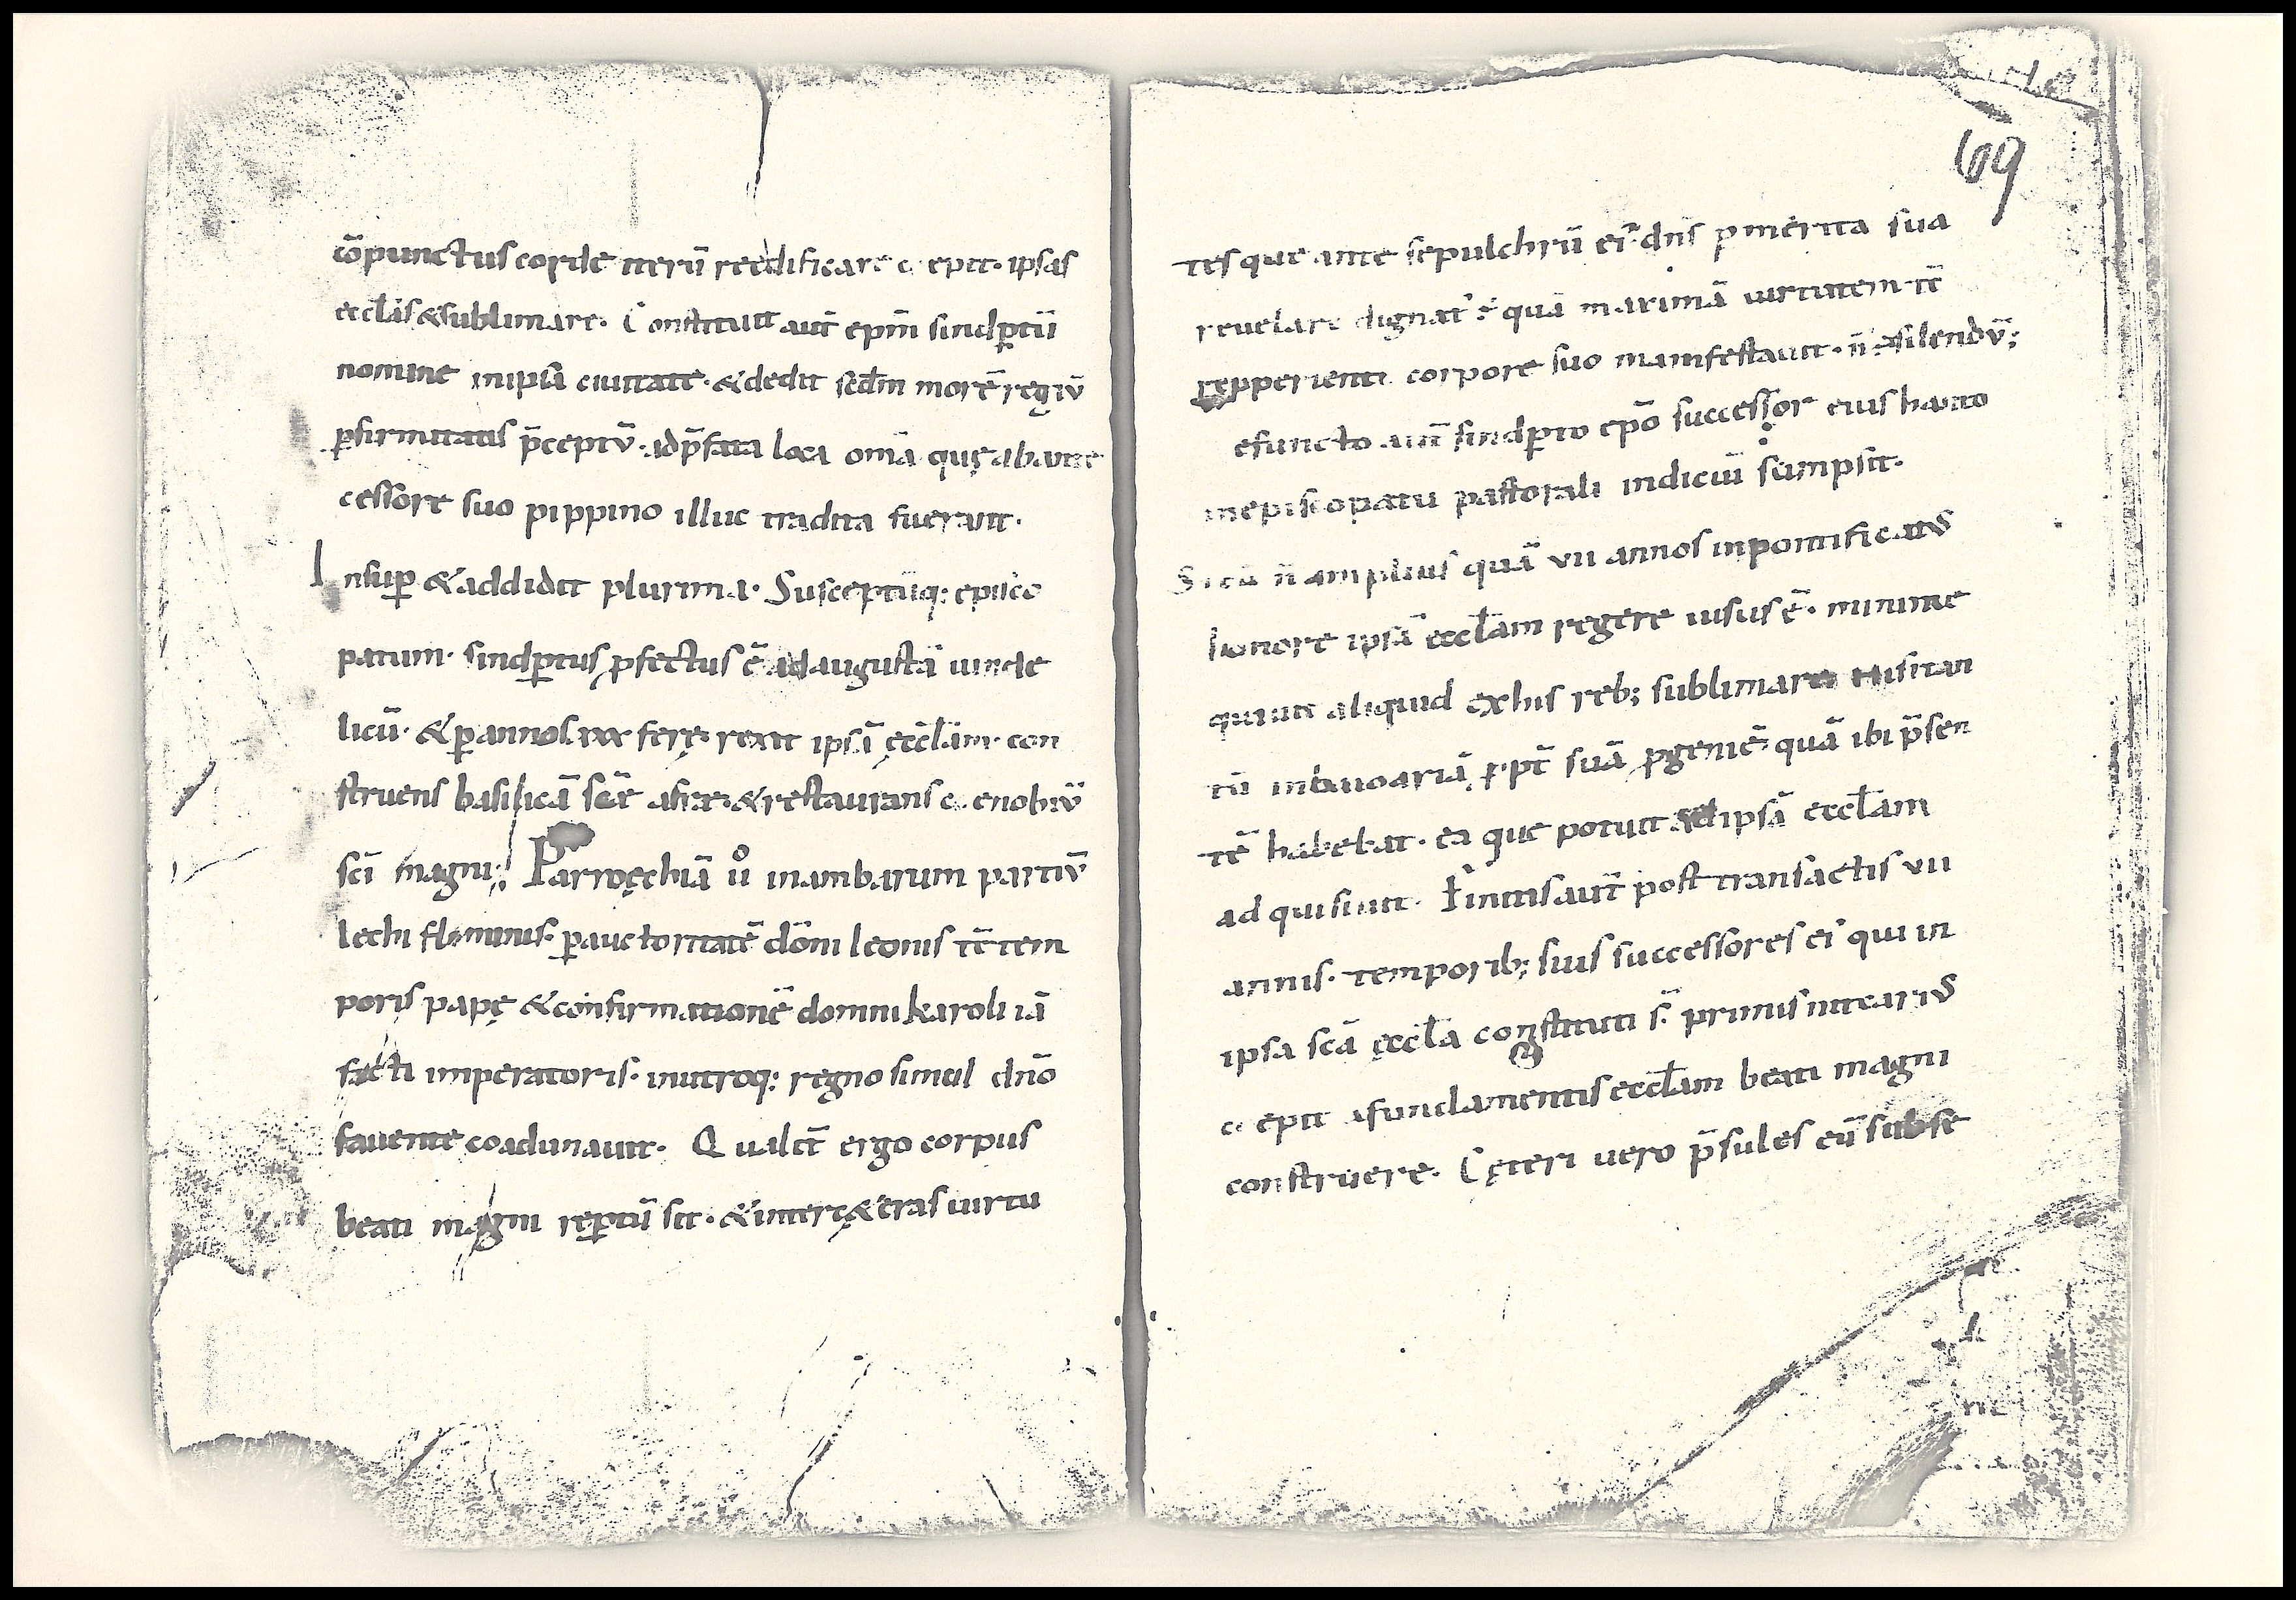 cō punctus corde iterū reedificare c epit· ipsas
eccl̄as &sublimare. Constituit aut̄ ep̄m sindp̲tū
nomine inipsā ciuitate· &dedit sed̄m morē regiū
p̲firmitatis p̄ceptū· adp̄fata loca om̄a quę abante
cessore suo pippino illuc tradita fuerant·
Insup̲ &addidit plurima· Susceptūq: episco
patum· sindp̲tus p̲fectus ē adaugustā uinde
licū· &p̲annos xxx ferę rexit ipsā ęccl̄am· con
struens basilicā sc̄ē afrę· &restaurans c enobiū
sc̄i magni; Parroęchiā ů inambarum partiū
lechi fluminis· p̲auctoritatē dōni leonis tētem
poris papę &confirmationē domni karoli iā
facti imperatoris· inutroq: regno simul dn̄o
fauente coadunauit· Qualit̄ ergo corpus
beati magni rep̲tū sit· &inter c&eras uirtu
69
tes que ante sepulchrū ei· dn̄s p merita sua
reuelare dignat ē quā maximā uirtutem īt
repperienti corpore suo manifestauit· n̄ ē silendū;
efuncto aut̄ sindp̲to ep̄o successor eius hanto
inepiscopatu pastorali indiciū sumpsit·
S ic ū n̄ amplius quā vii annos inpontificatus
honore ipsā eccl̄am regere uisus ē· minime
quiuit aliquid exhis reb; sublimare nisi tan
tū inbauoariā p̲pt̄ suā p̲geniē quā ibi p̄sen
tē habebat· ea que potuit ad ipsā eccl̄am
ad quisiuit· Finitis aut̄ post transactis vii
annis· temporib; suis successores ei qui in
ipsa sc̄ā ęccl̄a constituti s̄· primis nitcarius
c epit afundamentis eccl̄am beati magni
construere. Cęteri uero p̄sules eū subse